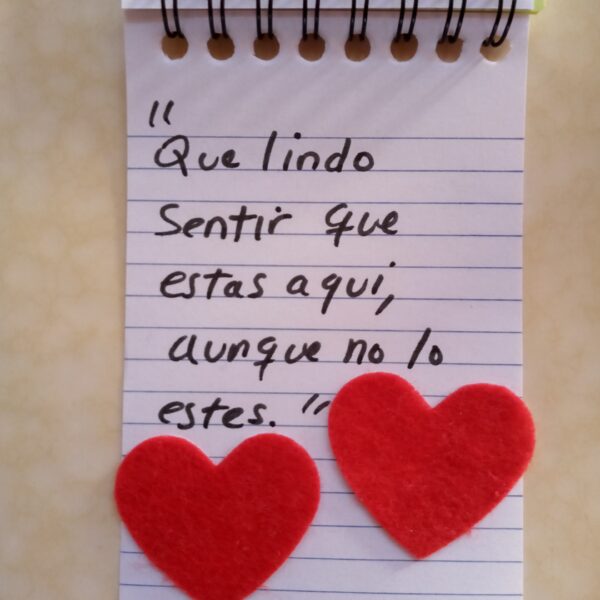 "
Que lindo
Sentir que
estas aqui,
aunque no lo
estes."